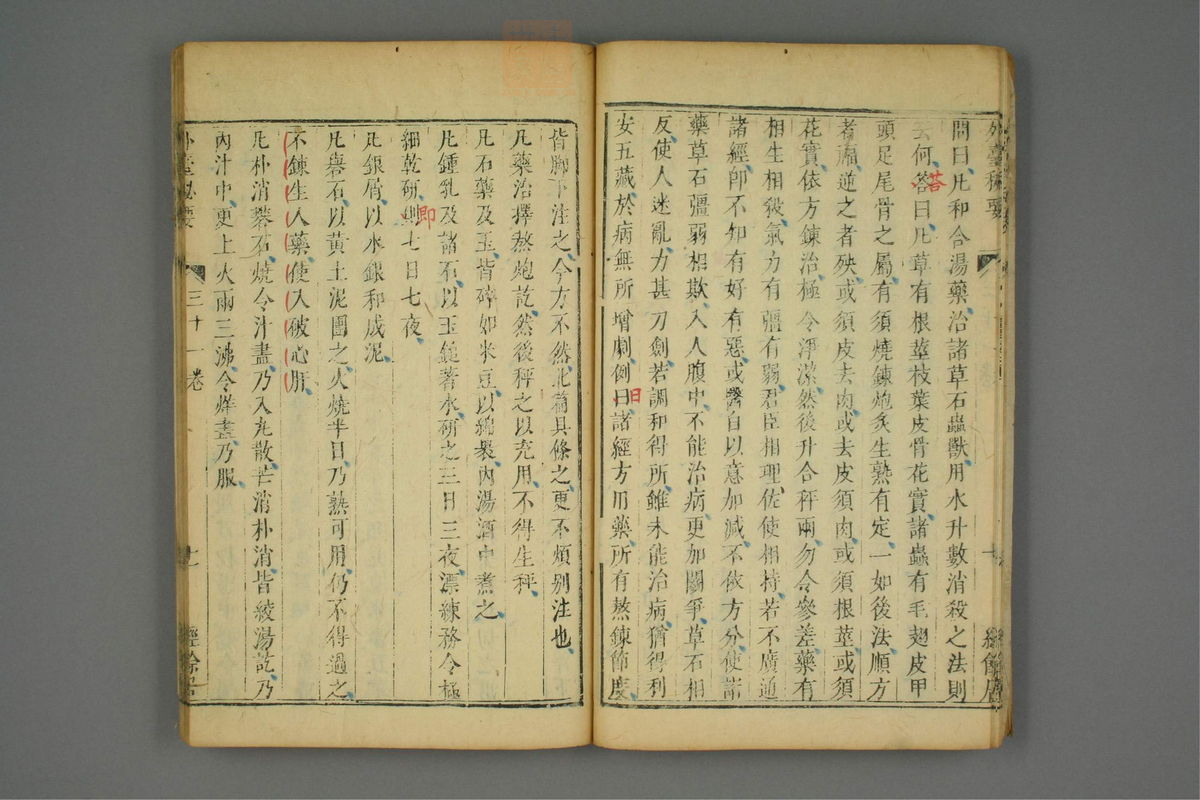 外臺秘要
問曰凡和合湯藥治諸草石蟲獸用水升數消殺之法則
云何答曰凡草有根莖枝葉皮骨花實諸蟲有毛翅皮甲
答
頭足尾骨之屬有須燒鍊炮炙生熟有定一如後法順方
者福逆之者殃或須皮去肉或去皮須肉或須根莖或須
花實依方鍊治極令淨潔然後升合秤兩勿令參差藥有
相生相殺氣力有彊有弱君臣相理佐使相持若不廣通
諸經卽不知有好有惡或醫自以意加減不依方分使諸
藥草石彊弱相欺入人腹中不能治病更加鬬爭草石相
反使人迷亂力甚刀劍若調和得所雖未能治病猶得利
安五藏於病無所增劇例曰諸經方用藥所有熬鍊節度
日
皆脚下注之今方不然北篇具條之更不煩别注也
凡藥治擇熬炮訖然後秤之以充用不得生秤
凡石藥及玉皆碎如米豆以綿裹內湯酒中煮之
凡鍾乳及諸石以玉鎚著水研之三日三夜漂練務令極
細乾研七日七夜
即
凡銀屑以水銀和成泥
凡礜石以黄土泥團之火燒半日乃熟可用仍不得過之
不鍊生入藥使入破心肝
凡朴消礬石燒令汁盡乃入丸散芒消朴消皆綾湯訖乃
內汁中更上火兩三沸令烊盡乃服
外臺秘要 三十一卷 七 經餘居